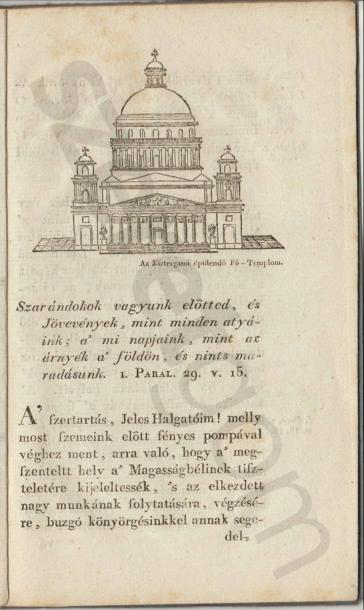 Az Esztergami épülendő Fő-Templom.
Szarándokok vagyunk elötted, és
Jövevények, mint minden atyá-
ink; a' mi napjaink, mint az
árnyék a' földön, és nints ma-
radásunk. 1. PARAL. 29. v. 15.
A' szertartás, Jeles Halgatóim! melly
most szemeink elött fényes pompával
véghez ment, arra való, hogy a' meg-
szenteltt hely a' Magasságbélinek tisz-
teletére kijeleltessék, 's az elkezdett
nagy munkának folytatására, végzésé-
re, buzgó könyörgésinkkel annak sege-
del-